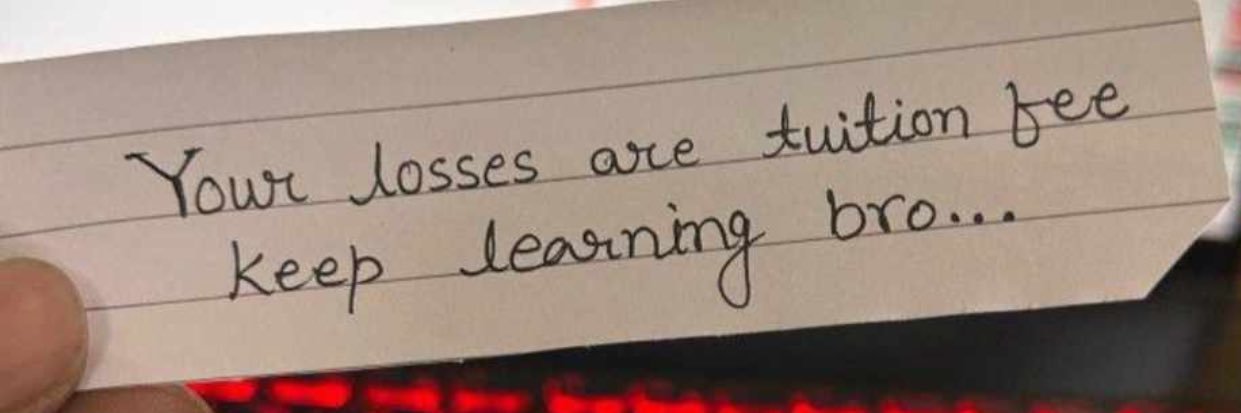 Your losses are tuition fee
keep learning bro...